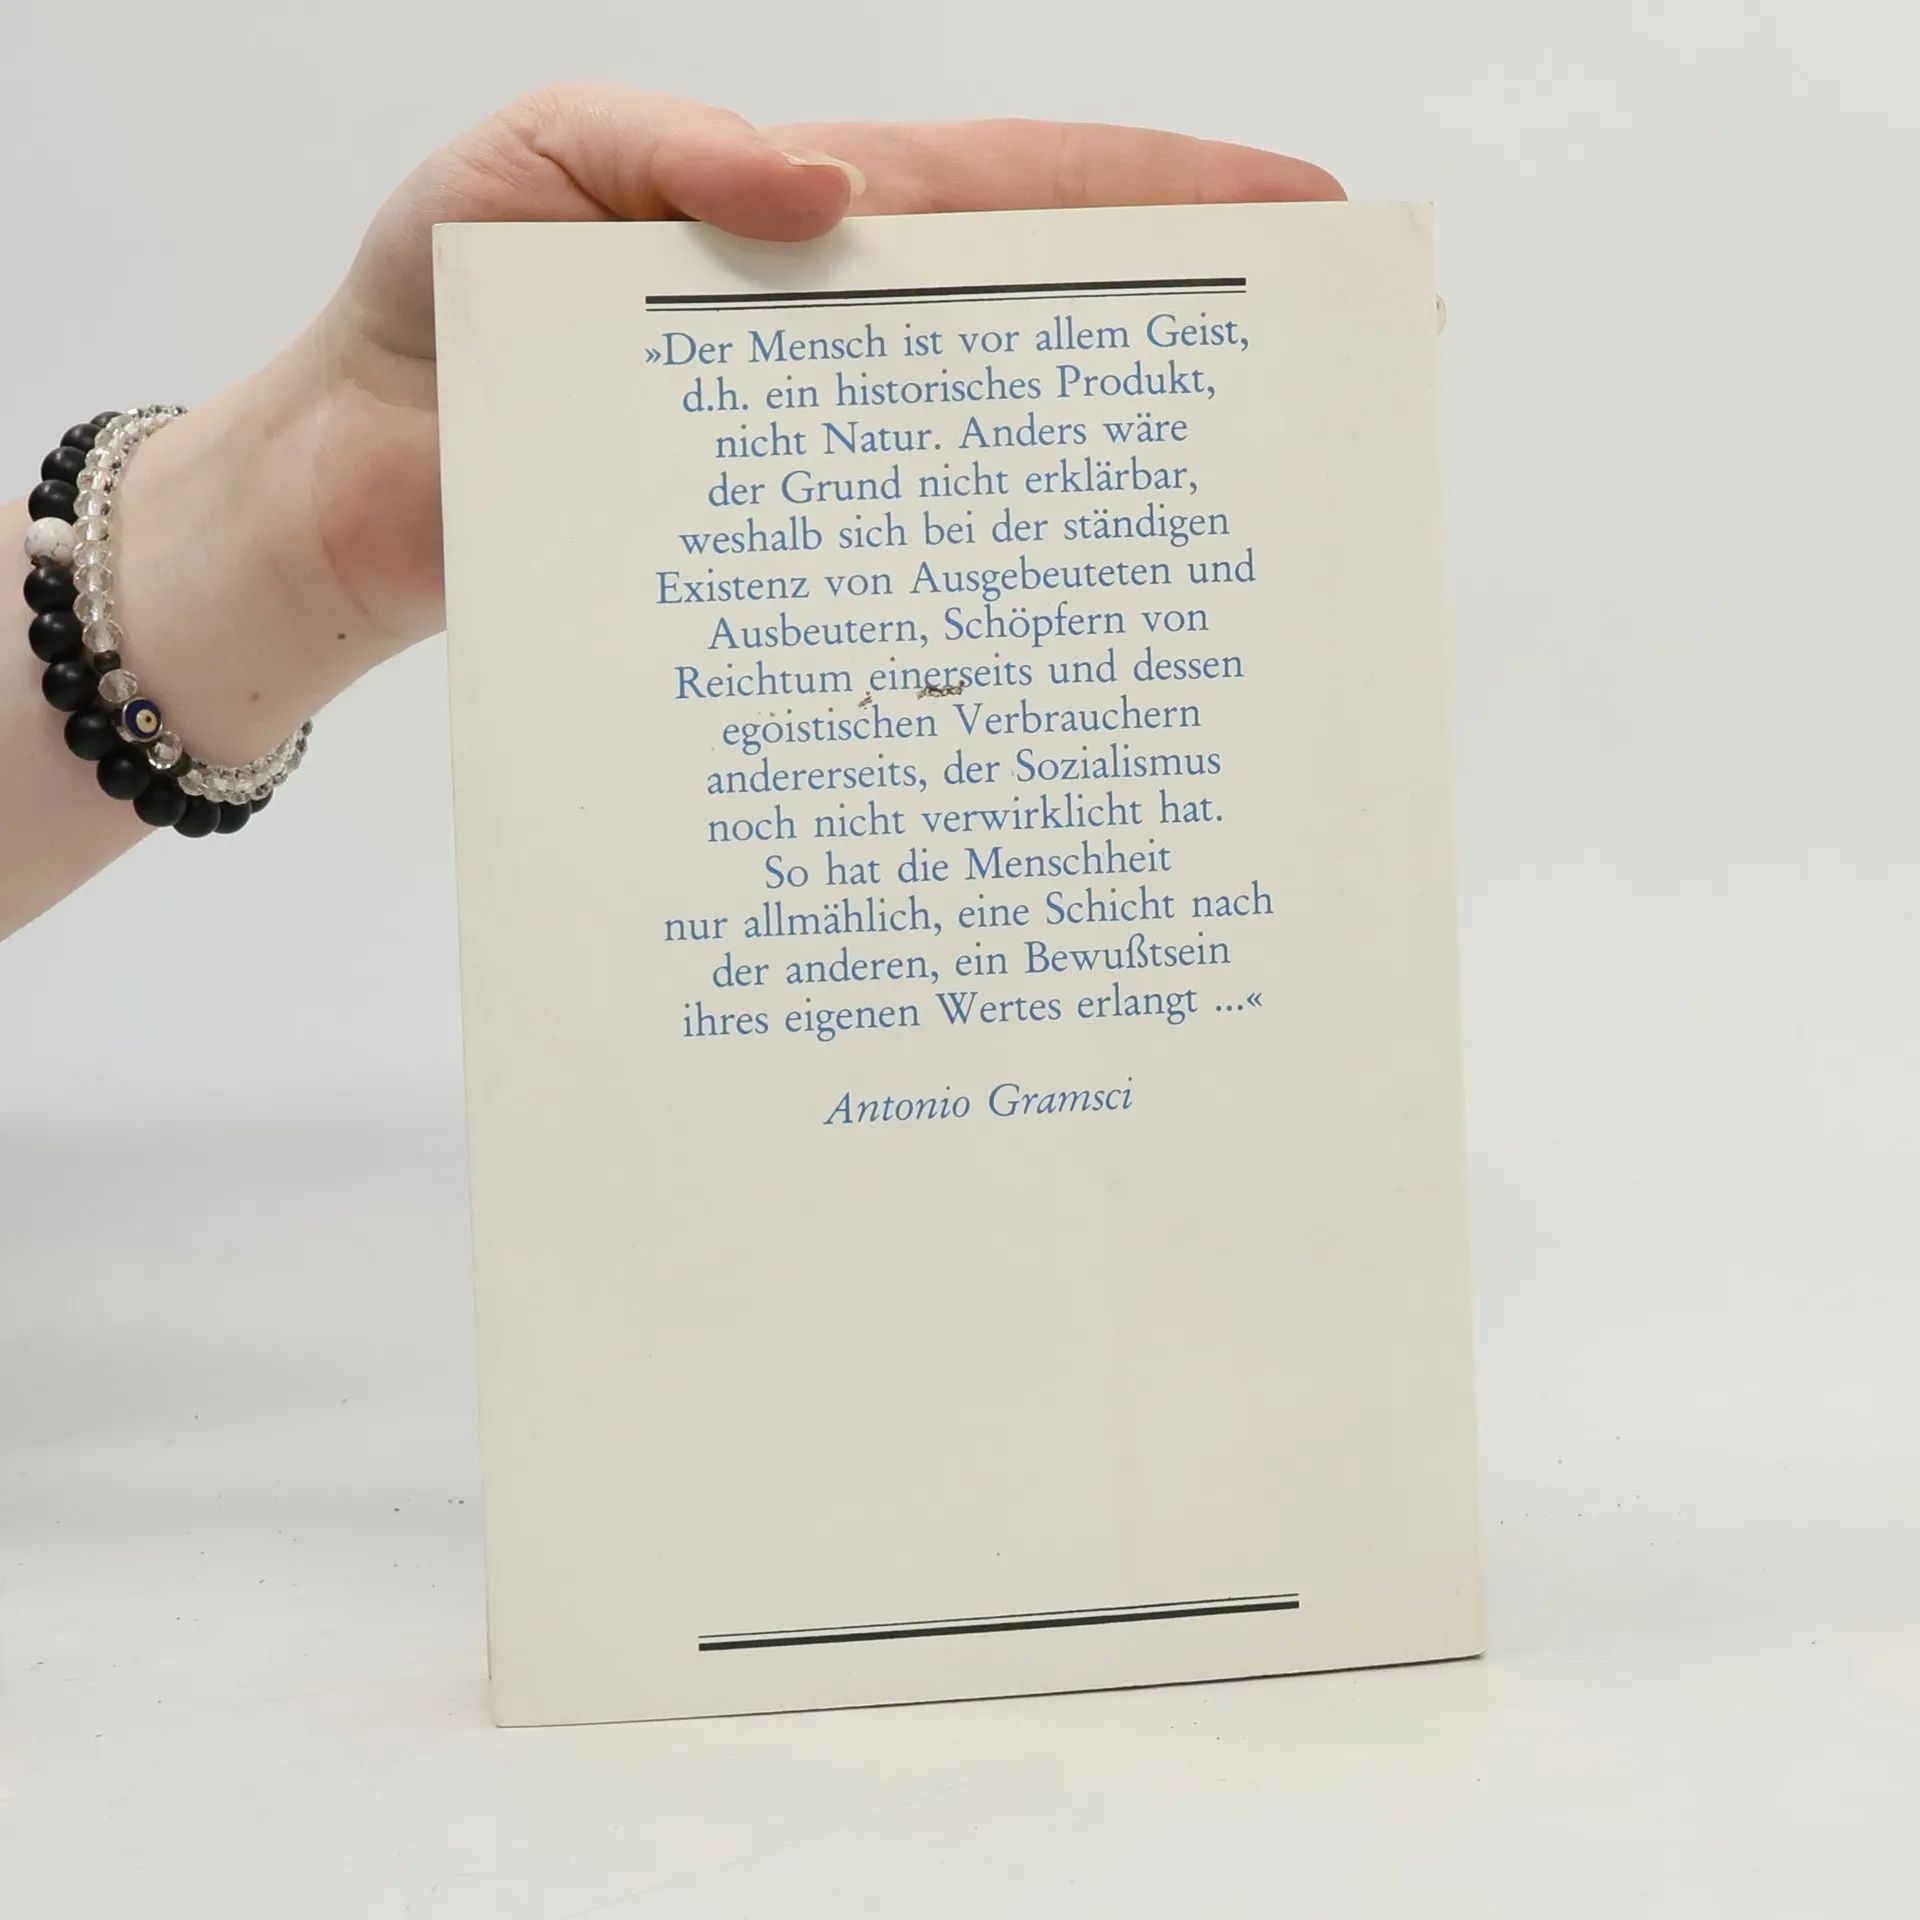 »Der Mensch ist vor allem Geist,
d.h. ein historisches Produkt,
nicht Natur. Anders wäre
der Grund nicht erklärbar,
weshalb sich bei der ständigen
Existenz von Ausgebeuteten und
Ausbeutern, Schöpfern von
Reichtum einerseits und dessen
egoistischen Verbrauchern
andererseits, der Sozialismus
noch nicht verwirklicht hat.
So hat die Menschheit
nur allmählich, eine Schicht nach
der anderen, ein Bewußtsein
ihres eigenen Wertes erlangt ...«
Antonio Gramsci